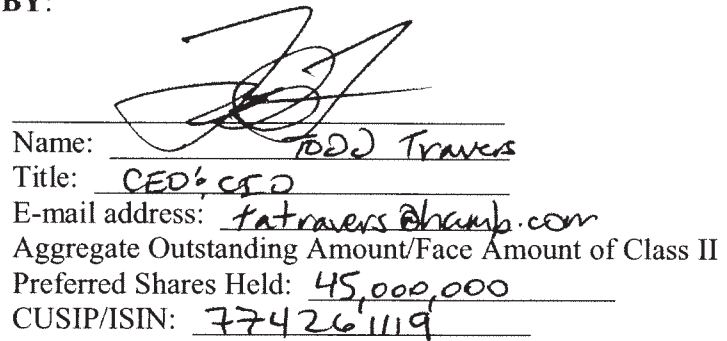 BY:
Name: TODD Travers
Title: CEO & CIO
E-mail address: tatravers@hcamb.com
Aggregate Outstanding Amount/Face Amount of Class II
Preferred Shares Held: 45,000,000
CUSIP/ISIN: 774261119